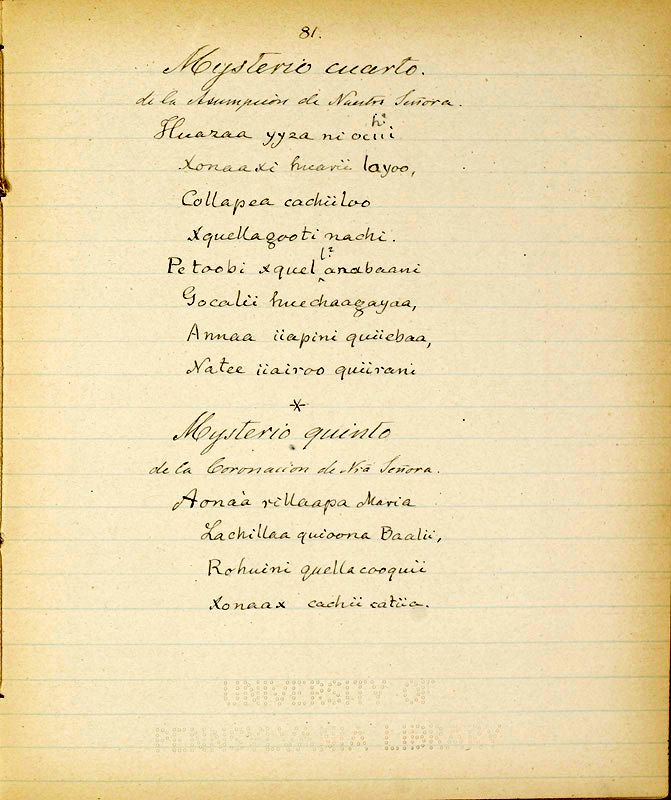 81.
Mysterio cuarto.
de la Asumpcion de Nuestra Señora.
Huazaa yyza ni ociii
hⁱ
xonaaxi huavii layoo,
Collapea cachiiloo
xquellagooti nachi.
Petoobi xquel anabaani
l²
Gocalii huechaagayaa,
Annaa iiapini quiiebaa,
Natee iiairoo quiirani
*
Mysterio quinto
de la Coronacion de Nrã Señora.
Aonaà rillaapa Maria
Lachillaa quioona Baalii,
Rohuini quellacooquii
xonaax cachii catiia.
UNIVERSITY OF
PENNSYLVANIA LIBRARY